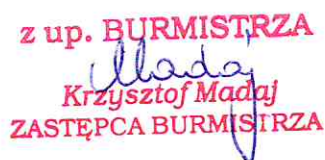 z up. BURMISTRZA
Madaj
Krzysztof Madaj
ZASTĘPCA BURMISTRZA